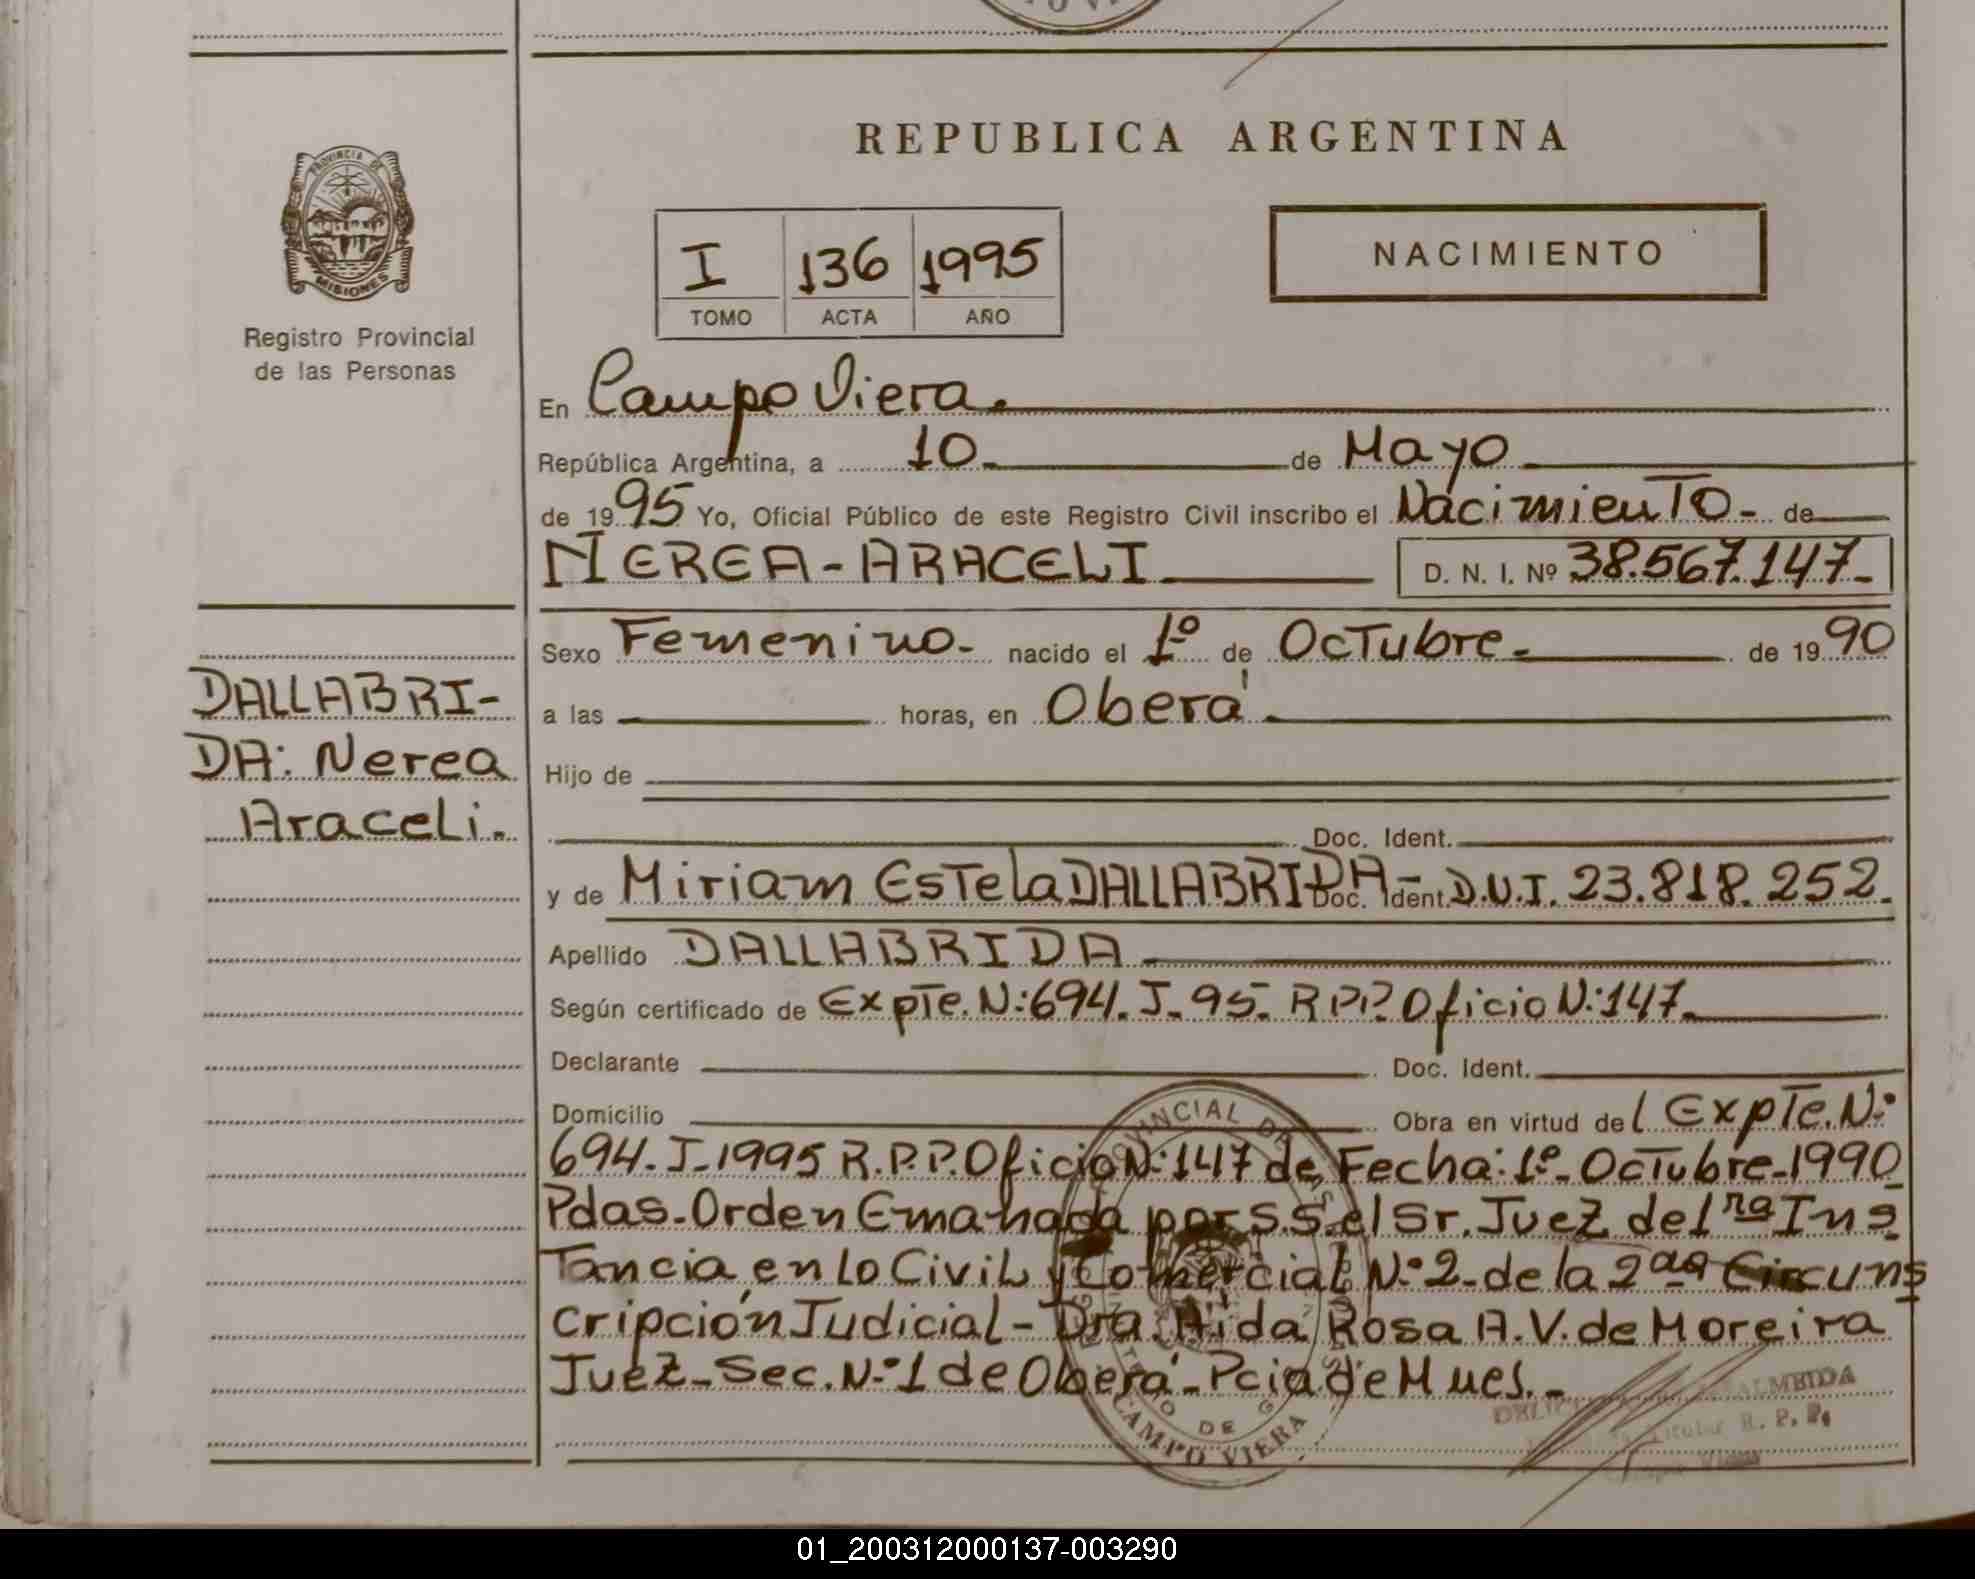 REPUBLICA ARGENTINA
PROVINCIA DE
MISIONES
Registro Provincial
de las Personas
I 136 1995
TOMO ACTA AÑO
NACIMIENTO
En Campo Viera.
República Argentina, a 10 de Mayo
de 1995 Yo, Oficial Público de este Registro Civil inscribo el Nacimiento - de
NEREA - ARACELI D. N. I. Nº 38.567.147-
Sexo Femenino - nacido el 1º de Octubre - de 1990
a las horas, en Oberá
Hijo de
Doc. Ident.
y de Miriam Estela DALLABRIDA - Doc. Ident. D.N.I. 23.818.252.
Apellido DALLABRIDA
Según certificado de Expte. N: 694. J. 95. R.P.P. Oficio N: 147.
Declarante Doc. Ident.
Domicilio Obra en virtud del Expte. N:
694. J-1995 R.P.P. Oficio N: 147 de Fecha: 1º- Octubre-1990
Pdas. Orden Emanada por S.S. el Sr. Juez de 1ra Ins
tancia en lo Civil y Comercial N:2-de la 2da Circuns
cripción Judicial - Dra. Aida Rosa A.V. de Moreira
Juez - Sec. N:1 de Oberá - Pcia de Mnes. -
DALLABRI-
DA: Nerea
Araceli.
CAMPO VIERA
ALMEIDA
Titular R. P. P.
01_200312000137-003290